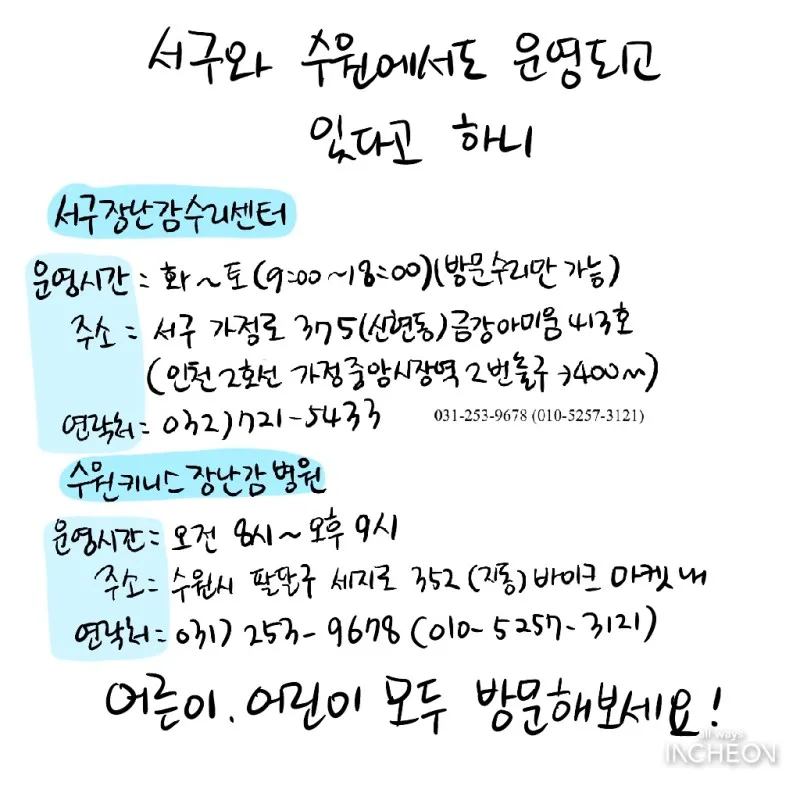 서구와 수원에서도 운영되고
있다고 하니
서구장난감수리센터
운영시간 = 화~토 (9:00~18:00)(방문수리만 가능)
주소 = 서구 가정로 375(신현동)금강아미움 413호
(인천2호선 가정중앙시장역 2번출구 →400m)
연락처 = 032)721-5433
031-253-9678 (010-5257-3121)
수원키니스장난감병원
운영시간 = 오전 8시~오후 9시
주소 = 수원시 팔달구 세지로 352 (지동) 바이크 마켓 내
연락처 = 031) 253-9678 (010-5257-3121)
어른이, 어린이 모두 방문해보세요!
all ways
INCHEON